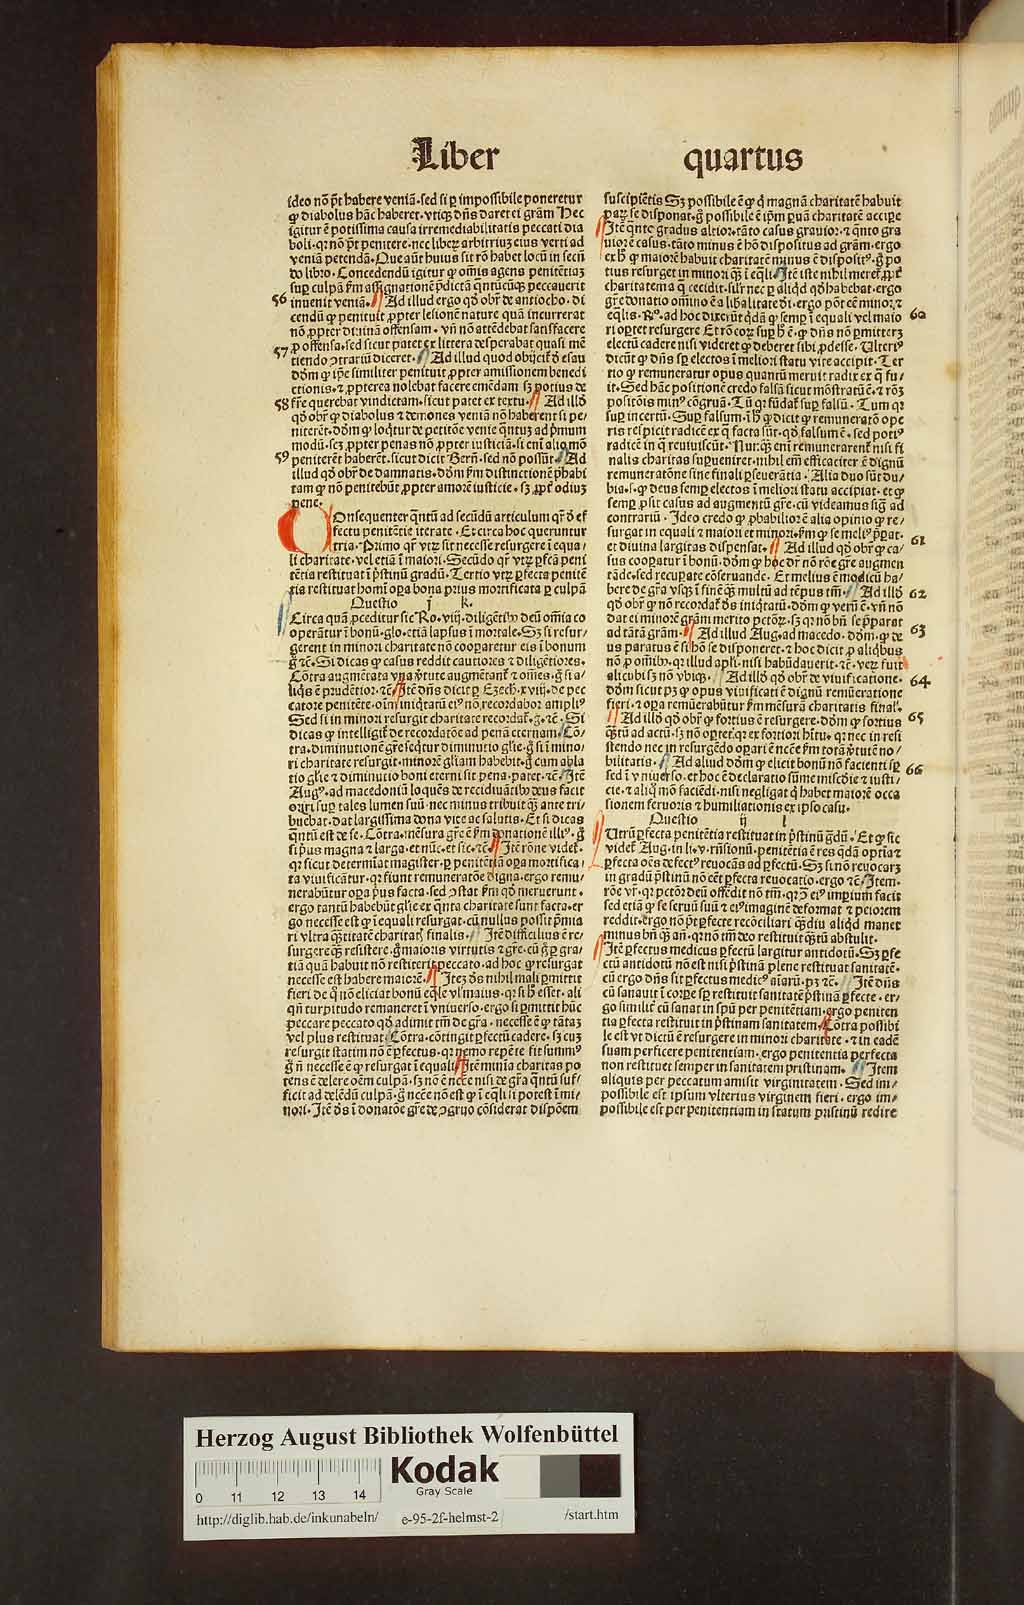 Liber quartus
ideo nō pōt habere veniā. sed si ꝑ impossibile poneretur
ꝙ diabolus hāc haberet. vtiqꝫ dn̄s daret ei grām Hec
igitur ē potissima causa irremediabilitatis peccati dia
boli. qꝛ nō pōt penitere. nec liberū arbitriū eius verti ad
veniā petendā. Que aūt huius sit rō habet locū in secū
do libro. Concedendū igitur ꝙ om̄is agens penitētiaꝫ
suꝑ culpā ẜm assignationē p̄dictā qn̄tūcūqꝫ peccauerit
56 inuenit veniā. Ad illud ergo qd̄ obr̄ de antiocho. di
cendū ꝙ penituit ꝓpter lesionē nature quā incurrerat
nō ꝓpter diuinā offensam. vn̄ nō attēdebat satisfacere
57 ꝓ offensa. sed sicut patet ex littera desperabat quasi mē
tiendo ↄtrariū diceret. Ad illud quod obijcit̄ d̄ esau
dōm ꝙ ip̄e similiter penituit ꝓpter amissionem benedi
ctionis. ⁊ ꝓpterea nolebat facere emēdam sꝫ potius de
58 fr̄e querebat vindictam. sicut patet ex textu. Ad illd̄
qd̄ obr̄ ꝙ diabolus ⁊ demones veniā nō haberent si pe/
niterēt. dōm ꝙ loqͥtur de petitōe venie qn̄tuꝫ ad pͥmum
modū. scꝫ ꝓpter penas nō ꝓpter iusticiā. si eni alio mō
59 peniterēt haberēt. sicut dicit Bern̄. sed nō possūt. Ad
illud qd̄ obr̄ de damnatis. dōm ẜm distinctionē p̄habi
tam ꝙ nō penitebūt ꝓpter amorē iusticie. sꝫ ꝓpt̄ odiuꝫ
pene.
COnsequenter qn̄tū ad secūdū articulum qr̄ d̄ ef
fectu penitētie iterate. Et circa hoc queruntur
tria. Primo qr̄ vtꝝ sit necesse resurgere ī equa/
li charitate. vel etiā ī maiori. Secūdo qr̄ vtꝝ ꝑfcā peni
tētia restituat ī pͥstinū gradū. Tertio vtꝝ ꝑfecta penitē
tia restituit homī oꝑa bona prius mortificata ꝑ culpā
Questio j k.
Circa quā ꝓceditur sic Ro. viij. diligētibꝫ deū om̄ia co
operātur ī bonū. glo. etiā lapsus ī mortale. Sꝫ si resur/
gerent in minori charitate nō cooꝑaretur eis ī bonum
g̊ ⁊c̄. Si dicas ꝙ casus reddit cautiores ⁊ diligētiores.
Cōtra augmētata vna ꝟtute augmētant̄ ⁊ om̄es. g̊ si a/
liqͥs ē prudētior. ⁊c̄. Itē dn̄s dicit ꝑ Ezech. xviij. de pec
catore penitēte. oīm iniqͥtatū eiꝰ nō recordabor ampliꝰ
Sed si in minori resurgit charitate recordat̄. g̊. ⁊c̄. Si
dicas ꝙ intelligit̄ de recordatōe ad penā eternam. Cō/
tra. diminutionē gr̄e seqͥtur diminutio gl̄ie. g̊ si ī mino/
ri charitate resurgit. minorē gl̄iam habebit. g̊ cum abla
tio gl̄ie ⁊ diminutio boni eterni sit pena. patet. ⁊c̄. Itē
Augꝰ. ad macedoniū loquēs de recidiuātibꝫ deus facit
oriri suꝑ tales lumen suū. nec minus tribuit qꝫ ante tri/
buebat. dat largissima dona vite ac salutis. Et si dicas
qn̄tū est de se. Cōtra. mēsura gr̄e ē ẜm donationē illiꝰ. g̊
si pͥus magna ⁊ larga. et nūc. et sic. ⁊c̄. Itē rōne videt̄.
qꝛ sicut determīat magister. ꝑ penitētiā oꝑa mortifica/
ta viuificātur. qꝛ fiunt remuneratōe digna. ergo remu/
nerabūtur oꝑa pͥus facta. sed ↄstat ẜm qd̄ meruerunt.
ergo tantū habebūt gl̄ie ex qn̄ta charitate sunt facta. er
go necesse est ꝙ ī equali resurgat. cū nullus possit pͥmia
ri vltra qꝫtitatē charitatꝭ finalis. Itē difficilius ē re/
surgere qꝫ resistere. g̊ maioris virtutis ⁊ gr̄e. cū g̊ ꝑ gra
tiā quā habuit nō restiterit peccato. ad hoc ꝙ resurgat
necesse est habere maiorē. Iteꝫ dn̄s nihil mali ꝑmittit
fieri de qͦ nō eliciat bonū eqͣle vl̓ maius. qꝛ si h̄ esset. ali
qn̄ turpitudo remaneret ī vniuerso. ergo si ꝑmittit hūc
peccare peccato qd̄ adimit tm̄ de gr̄a. necesse ē ꝙ tātaꝫ
vel plus restituat Cōtra. cōtingit ꝑfectū cadere. sꝫ cuꝫ
resurgit statim nō ē ꝑfectus. qꝛ nemo repēte fit summꝰ
g̊ nō necesse ē ꝙ resurgat ī equali Itē minīa charitas po
tens ē delere oēm culpā. sꝫ nō ē nc̄ce nisi de gr̄a qn̄tū suf/
ficit ad delēdū culpā. g̊ nc̄ce nō est ꝙ ī eqͣli sꝫ potest ī mi/
nori. Itē dn̄s ī donatōe gr̄e de ↄgruo cōsiderat dispōem
suscipiētis Sꝫ possibile ē ꝙ qͥ magnā charitatē habuit
parū se disponat. g̊ possibile ē ip̄m ꝑuā charitatē accipe
Itē qn̄to gradus altior. tāto casus grauior. ⁊ qn̄to gra
uior ē casus. tāto minus ē hō dispositus ad grām. ergo
ex h̄ ꝙ maiorē habuit charitatē minus ē dispositꝰ. g̊ po
tius resurget in minori qꝫ ī eqͣli. Itē iste nihil meret̄ ꝓpt̄
charitatem a qͣ cecidit. sil̓r nec ꝑ aliqd̄ qd̄ habebat. ergo
gr̄e donatio om̄ino ē a liƀalitate dei. ergo pōt eē minor. ⁊
60 eqͣlis. R̄o. ad hoc dixerūt qͥdā ꝙ semꝑ ī equali vel maio
ri oꝑtet resurgere Et rō eoꝝ suꝑ h̄ ē. ꝙ dn̄s nō ꝑmitterꝫ
electū cadere nisi videret ꝙ deberet sibi ꝓdesse. Vlteriꝰ
dicūt ꝙ dn̄s suꝑ electos ī meliori statu vite accipit. Ter
tio ꝙ remuneratur opus quantū meruit radix ex qͣ fu/
it. Sed hāc positionē credo falsā sicut mōstratū ē. ⁊ rōꝫ
positōis minꝰ cōgruā. Tū qꝛ fūdat̄ suꝑ falsū. Tum qꝛ
suꝑ incertū. Suꝑ falsum. ī h̄ ꝙ dicit ꝙ remuneratō ope
ris respicit radicē ex qͣ facta sūt. qd̄ falsum ē. sed potiꝰ
radicē in qͣ reuiuiscūt. Nūqꝫ em̄ remunerarent̄ nisi fi
nalis charitas suꝑueniret. nihil em̄ efficaciter ē dignū
remuneratōne sine finali ꝑseuerātia. Alia duo sūt du/
bia. s. ꝙ deus semꝑ electos ī meliori statu accipiat. et ꝙ
semꝑ ꝓsit casus ad augmentū gr̄e. cū videamus sig̃ ad
contrariū. Ideo credo ꝙ ꝓbabilior ē alia opinio ꝙ re/
surgat in equali ⁊ maiori et minori. ẜm ꝙ se meliꝰ pͣpat.
61 et diuina largitas dispensat. Ad illud qd̄ obr̄ ꝙ ca/
sus cooꝑatur ī bonū. dōm ꝙ hoc dr̄ nō rōe gr̄e augmen
tāde. sed recuꝑate cōseruande. Et melius ē modicū ha/
62 bere de gr̄a vsqꝫ ī finē qꝫ multū ad tēpus tm̄. Ad illd̄
qd̄ obr̄ ꝙ nō recordat̄ dn̄s iniqͥtatū. dōm ꝙ verū ē. vn̄ nō
dat ei minorē grām merito pctōꝝ. sꝫ qꝛ nō bn̄ se p̄parat
63 ad tātā grām. Ad illud Aug. ad macedo. dōm. ꝙ de
us paratus ē si hō se disponeret. ⁊ hoc dicit ꝓ aliqͥbus
nō ꝓ om̄ibꝫ. qꝛ illud apl̓i. nisi habūdauerit. ⁊c̄. verꝫ fuit
64 alicubi sꝫ nō vbiqꝫ. Ad illd̄ qd̄ obr̄ de viuificatione.
dōm sicut pꝫ ꝙ opus viuificati ē dignū remūeratione
fieri. ⁊ oꝑa remunerabūtur ẜm mēsurā charitatis final̓.
65 Ad illd̄ qd̄ obr̄ ꝙ fortius ē resurgere. dōm ꝙ fortius
qꝫtū ad actū. sꝫ nō oꝑtet. qꝛ ex fortiori hītu. qꝛ nec in resi
stendo nec in resurgēdo oꝑari ē nc̄ce ẜm totā ꝟtutē no/
66 bilitatis. Ad aliud dōm ꝙ elicit bonū nō facienti suꝑ
sed ī vniuerso. et hoc ē declaratio sūme misc̄die ⁊ iusti/
cie. ⁊ aliqͥ mō faciēdi. nisi negligat qͥ habet maiorē occa
sionem feruoris ⁊ humiliationis ex ipso casu.
Questio ij l
Utrū ꝑfecta penitētia restituat in pͥstinū gͣdū. Et ꝙ sic
videt̄ Aug. in li. v. rn̄sionū. penitētia ē res qͣdā optīa ⁊
ꝑfecta oēs defectꝰ reuocās ad ꝑfectū. Sꝫ si nō reuocarꝫ
in gradū pͥstinū nō eēt ꝑfecta reuocatio. ergo ⁊c̄. Item.
rōe vr̄. qꝛ pctōr deū offēdit nō tm̄. qꝛ ↄ̄ eiꝰ imꝑium facit
sed etiā ꝙ se seruū suū ⁊ eiꝰ imaginē deformat ⁊ peiorem
reddit. ergo nō pōt ꝑfecte recōciliari qꝫdiu aliqd̄ manet
minus bn̄ qꝫ an̄. qꝛ nō tm̄ deo restituit qꝫtū abstulit.
Itē ꝑfectus medicus ꝑfectū largitur antidotū. Sꝫ ꝑfe
ctū antidotū nō est nisi pͥstinā ⁊ plene restituat sanitatē.
cū ergo dn̄s sit ꝑfectus medicꝰ aīarū. pꝫ ⁊c̄. Itē dn̄s
cū sanauit ī corꝑe sꝑ restituit sanitatē pͥstinā ꝑfecte. er/
go similit̄ cū sanat in spū per penitētiam. ergo peniten
tia ꝑfecta restituit in pͥstinam sanitatem. Cōtra possibi
le est vt dictū ē resurgere in minori charitate. ⁊ in eadē
suam perficere penitentiam. ergo penitentia perfecta
non restituet semper in sanitatem pristinam. Item
aliquis per peccatum amisit virginitatem. Sed im/
possibile est ipsum vlterius virginem fieri. ergo im/
possibile est per penitentiam in statum pristinū redire
Herzog August Bibliothek Wolfenbüttel
0 11 12 13 14
Kodak
Gray Scale
http://diglib.hab.de/inkunabeln/ e-95-2f-helmst-2 /start.htm